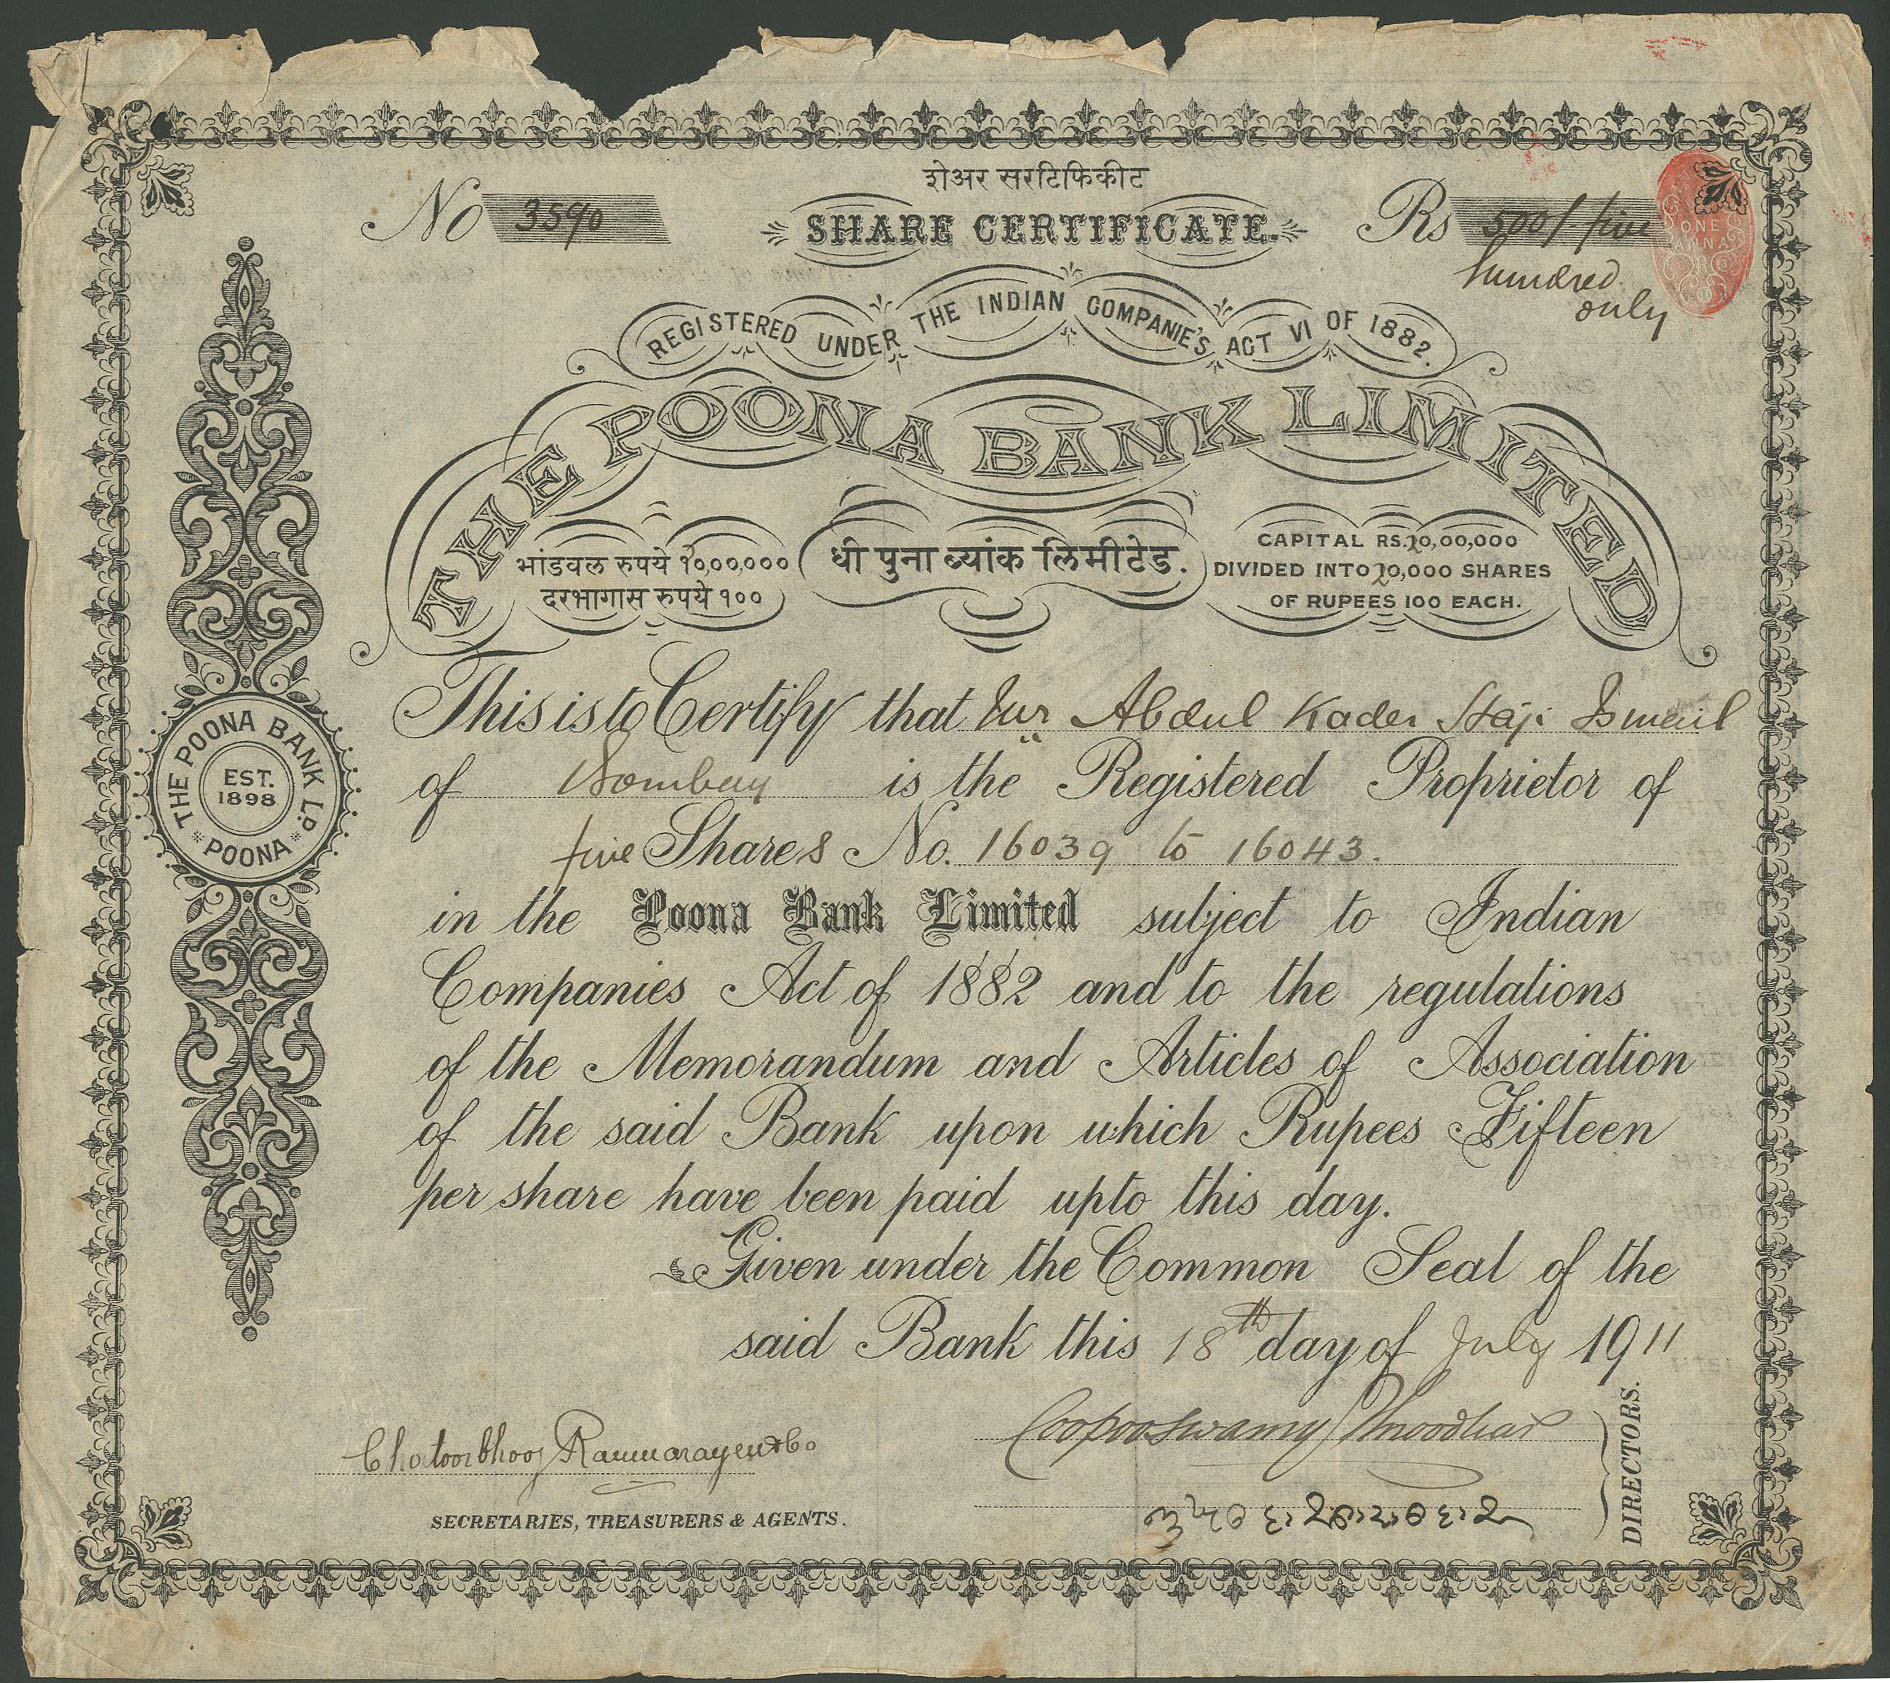 शेअर सरटिफिकीट
No 3590
SHARE CERTIFICATE.
Rs 500/- five
hundred
only
ONE
ANNA
REGISTERED UNDER THE INDIAN COMPANIE'S ACT VI OF 1882.
THE POONA BANK LIMITED
भांडवल रुपये १०,००,०००
दरभागास रुपये १००
धी पुना ब्यांक लिमीटेड.
CAPITAL RS. 20,00,000
DIVIDED INTO 20,000 SHARES
OF RUPEES 100 EACH.
This is to Certify that Mr Abdul Kader Haji Ismail
of Bombay is the Registered Proprietor of
five Shares No. 16039 to 16043.
in the Poona Bank Limited subject to Indian
Companies Act of 1882 and to the regulations
of the Memorandum and Articles of Association
of the said Bank upon which Rupees Fifteen
per share have been paid upto this day.
Given under the Common Seal of the
said Bank this 18th day of July 1911
THE POONA BANK LD.
EST.
1898
POONA
Chatoorbhooj Ramnarayen & Co
SECRETARIES, TREASURERS & AGENTS.
Coopooswamy Moodliar
DIRECTORS.